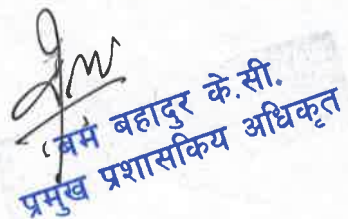 बम बहादुर के.सी.
प्रमुख प्रशासकिय अधिकृत